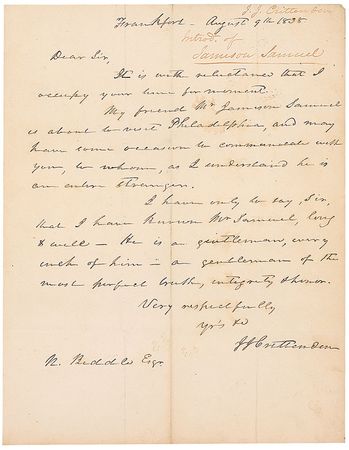 J. J. Crittenden
Frankfort - August 9th 1838
Introd. of
Jamison Samuel
Dear Sir,
It is with reluctance that I
occupy your time for moment.
My friend Mr Jamison Samuel
is about to visit Philadelphia, and may
have some occasion to communicate with
you, to whom, as I understand he is
an entire stranger.
I have only to say, Sir,
that I have known Mr Samuel, long
& well - He is a gentleman, every
inch of him - a gentleman of the
most perfect truth, integrity & honor.
Very respectfully
Yr's &c
J J Crittenden
N. Biddle Esqr